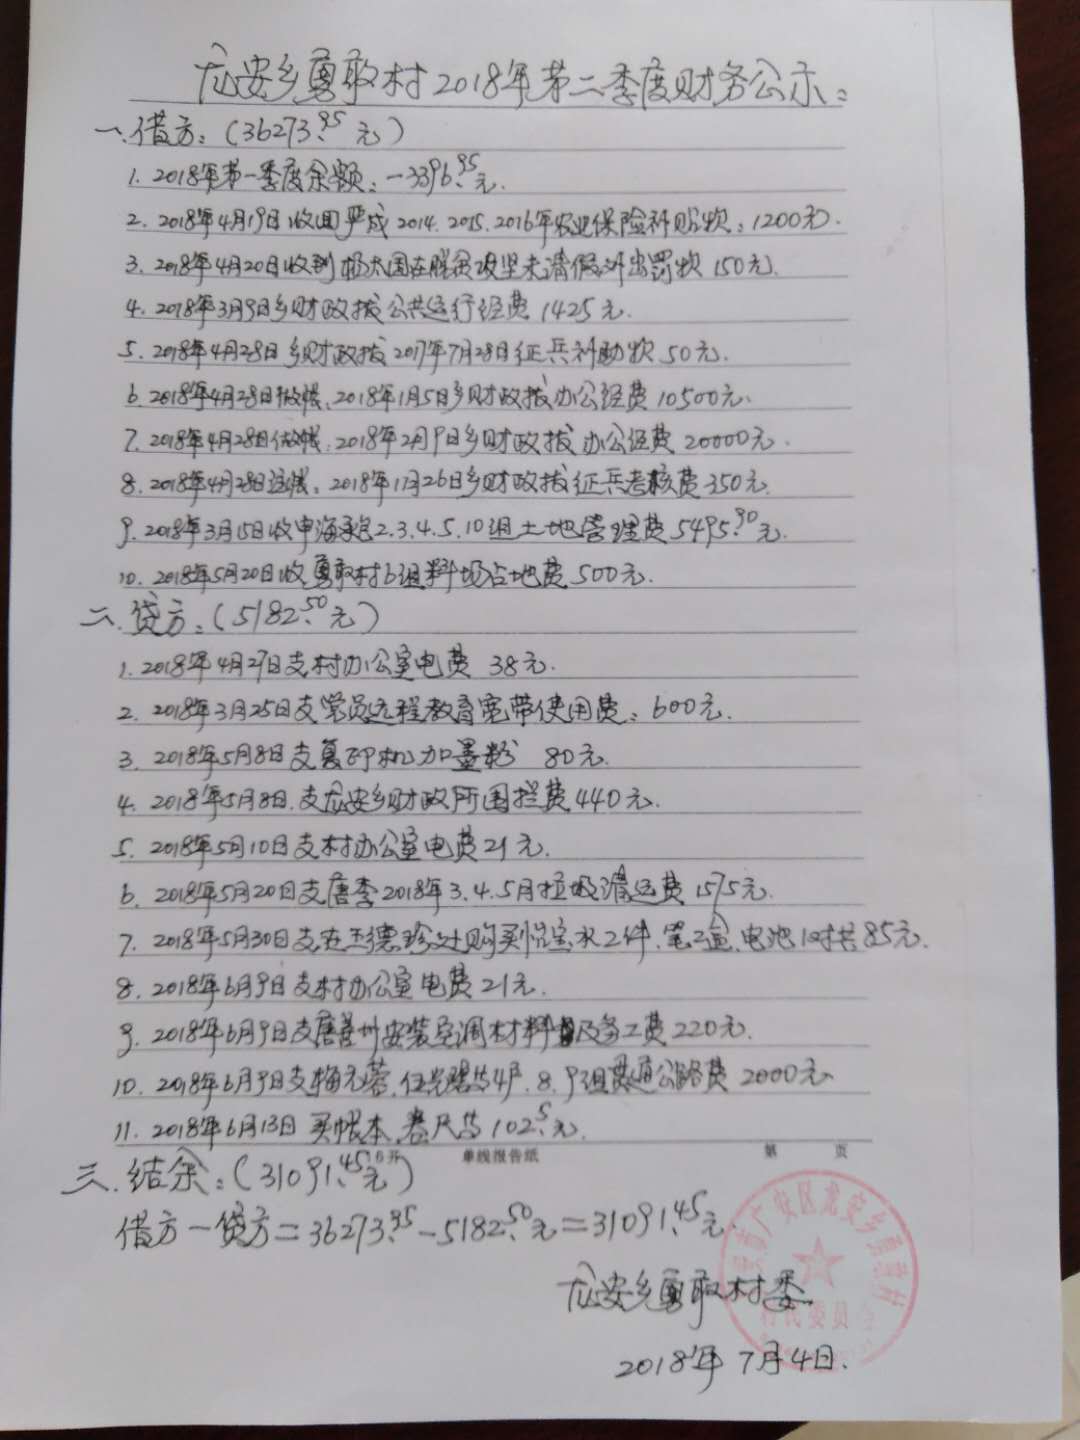 龙安乡勇敢村2018年第二季度财务公示:
一、借方:(36273.95元)
1. 2018年第一季度余额:-3396.95元.
2. 2018年4月19日收回严成2014.2015.2016年农业保险补贴款:1200元.
3. 2018年4月20日收到杨太国在脱贫攻坚未请假外出罚款150元.
4. 2018年3月9日乡财政拨公共运行经费1425元.
5. 2018年4月28日乡财政拨2017年7月28日征兵补助款50元.
6. 2018年4月28日做帐:2018年1月5日乡财政拨办公经费10500元.
7. 2018年4月28日做帐:2018年2月9日乡财政拨办公经费20000元.
8. 2018年4月28日帐:2018年11月26日乡财政拨征兵考核费350元.
9. 2018年3月15日收申海承包2.3.4.5.10组土地管理费5495.90元.
10. 2018年5月20日收勇敢村6组料场占地费500元.
二、贷方:(5182.50元)
1. 2018年4月27日支村办公室电费 38元.
2. 2018年3月25日支党员远程教育宽带使用费:600元.
3. 2018年5月8日支复印机加墨粉 80元.
4. 2018年5月8日.支龙安乡财政所围拦费440元.
5. 2018年5月10日支村办公室电费21元.
6. 2018年5月20日支唐李2018年3.4.5月垃圾清运费1575元.
7. 2018年5月30日支在王德珍处购买怡宝水2件.笔2盒.电池1对共85元.
8. 2018年6月9日支村办公室电费21元.
9. 2018年6月9日支唐州安装空调材料及务工费220元.
10. 2018年6月9日支梅元蓉.任光等4户.8.9组贯通公路费2000元
11. 2018年6月13日买帐本.卷尺等102.5元.
16开 单线报告纸 第 页
三.结余:(31091.45元)
借方-贷方=36273.95-5182.50元=31091.45元.
龙安乡勇敢村委
2018年7月4日.
市广安区龙安乡勇敢村
村民委员会